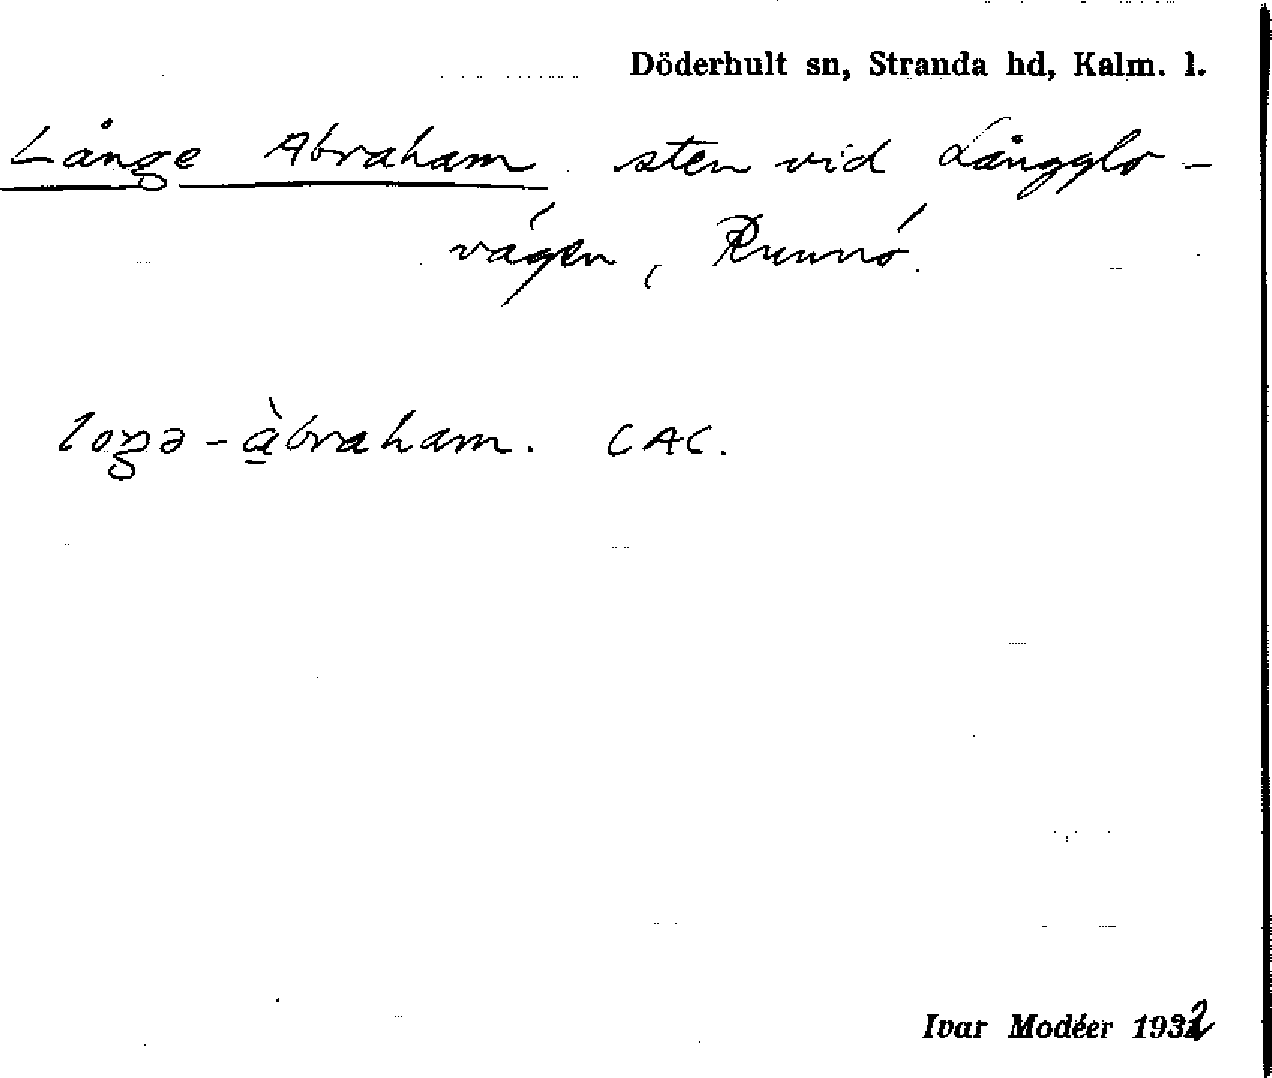 Döderhult sn, Stranda hd, Kalm. l.
Långe Abraham sten vid Långglo-
vägen, Runnö.
loŋə-àbraham. CAC.
Ivar Modéer 1932